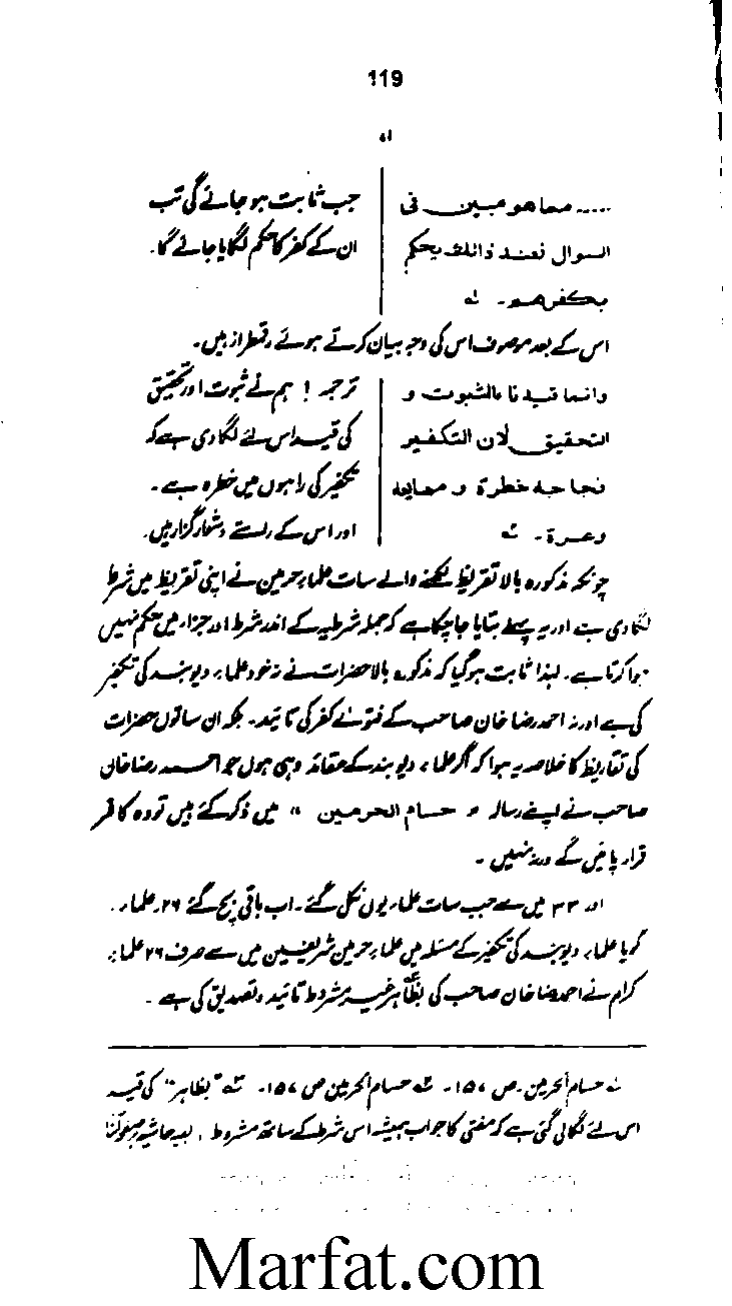 119
۱۵
..... مماهو مبین فی
السوال فعند ذالك یحکم
بکفرهم۔ ۱ه
جب ثابت ہو جائے گی تب
ان کے کفر کا حکم لگایا جائے گا۔
اس کے بعد موصوف اس کی وجہ بیان کرتے ہوئے رقمطراز ہیں۔
وانما قیدنا بالثبوت و
التحقیق لان التکفیر
فجاجه خطرة و مهایعه
وعرة۔ ۲ه
ترجمہ ! ہم نے ثبوت اور تحقیق
کی قید اس لئے لگا دی ہے کہ
تکفیر کی راہوں میں خطرہ ہے۔
اور اس کے راستے دشوار گزار ہیں۔
چونکہ مذکورہ بالا تقریظ لکھنے والے سات علماء حرمین نے اپنی تقریظ میں شرط
لگا دی ہے اور یہ پہلے بتایا جا چکا ہے کہ جملہ شرطیہ کے اندر شرط اور جزاء میں حکم نہیں
ہوا کرتا ہے۔ لہٰذا ثابت ہو گیا کہ مذکورہ بالا حضرات نے نہ خود علماء دیوبند کی تکفیر
کی ہے اور نہ احمد رضا خان صاحب کے فتوٰے کفر کی تائید۔ بلکہ ان ساتوں حضرات
کی تقاریظ کا خلاصہ یہ ہوا کہ اگر علماء دیوبند کے عقائد وہی ہوں جو احمد رضا خان
صاحب نے اپنے رسالہ " حسام الحرمین " میں ذکر کئے ہیں تو وہ کافر
قرار پائیں گے ورنہ نہیں ۔
اور ۳۳ میں سے جب سات علماء یوں نکل گئے۔ اب باقی بچ گئے ۲۶ علماء۔
گویا علماء دیوبند کی تکفیر کے مسئلہ میں علماء حرمین شریفین میں سے صرف ۲۶ علماء
کرام نے احمد رضا خان صاحب کی بظاہر غیر مشروط تائید و تصدیق کی ہے ۔
۱ه حسام الحرمین۔ ص ۱۵۷۔ ۲ه حسام الحرمین ص ۱۵۷۔ ۳ه "بظاہر" کی قید
اس لئے لگائی گئی ہے کہ مفتی کا جواب ہمیشہ اس شرط کے ساتھ مشروط ، بقیہ حاشیہ
Marfat.com